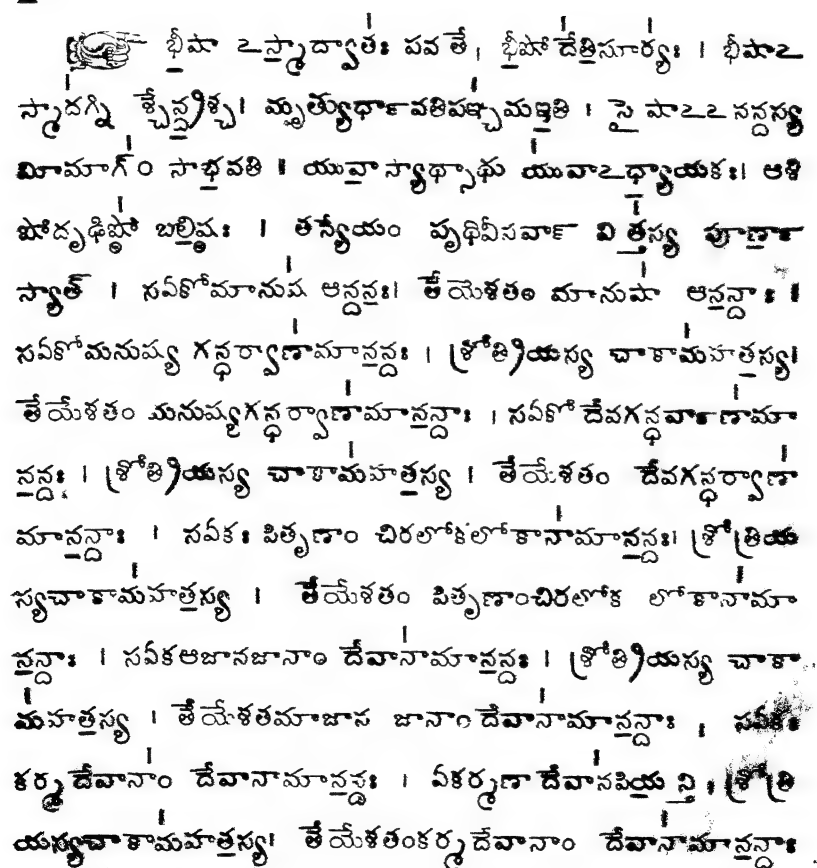 భీషా ఽస్మాద్వాతః పవ తే। భీషో దేతిసూర్యః । భీషాఽ
స్మాదగ్ని శ్చేన్ద్రశ్చ। మృత్యుర్ధావతిపఞ్చమఇతి । సై షాఽఽ నన్దస్య
మీమాగ్ం సాభవతి । యువాస్యాథ్సాధు యువాఽధ్యాయకః। ఆశి
షోదృఢిష్ఠో బలిష్ఠః । తస్యేయం పృథివీసర్వా విత్తస్య పూర్ణా
స్యాత్ । సఏకోమానుష ఆనన్దః। తేయేశతం మానుషా ఆనన్దాః ।
సఏకోమనుష్య గన్ధర్వాణామానన్దః । శ్రోత్రియస్య చాకామహతస్య।
తేయేశతం మనుష్యగన్ధర్వాణామానన్దాః । సఏకో దేవగన్ధర్వాణామా
నన్దః । శ్రోత్రియస్య చాకామహతస్య । తేయేశతం దేవగన్ధర్వాణా
మానన్దాః । సఏకః పితృణాం చిరలోకలోకానామానన్దః। శ్రోత్రియ
స్యచాకామహతస్య । తేయేశతం పితృణాంచిరలోక లోకానామా
నన్దాః । సఏకఆజానజానాం దేవానామానన్దః । శ్రోత్రియస్య చాకా
మహతస్య । తేయేశతమాజాన జానాం దేవానామానన్దాః । సఏకః
కర్మ దేవానాం దేవానామానన్దః । ఏకర్మణా దేవానపియ న్తి । శ్రోత్రి
యస్యచాకామహతస్య। తేయేశతంకర్మ దేవానాం దేవానామానన్దాః